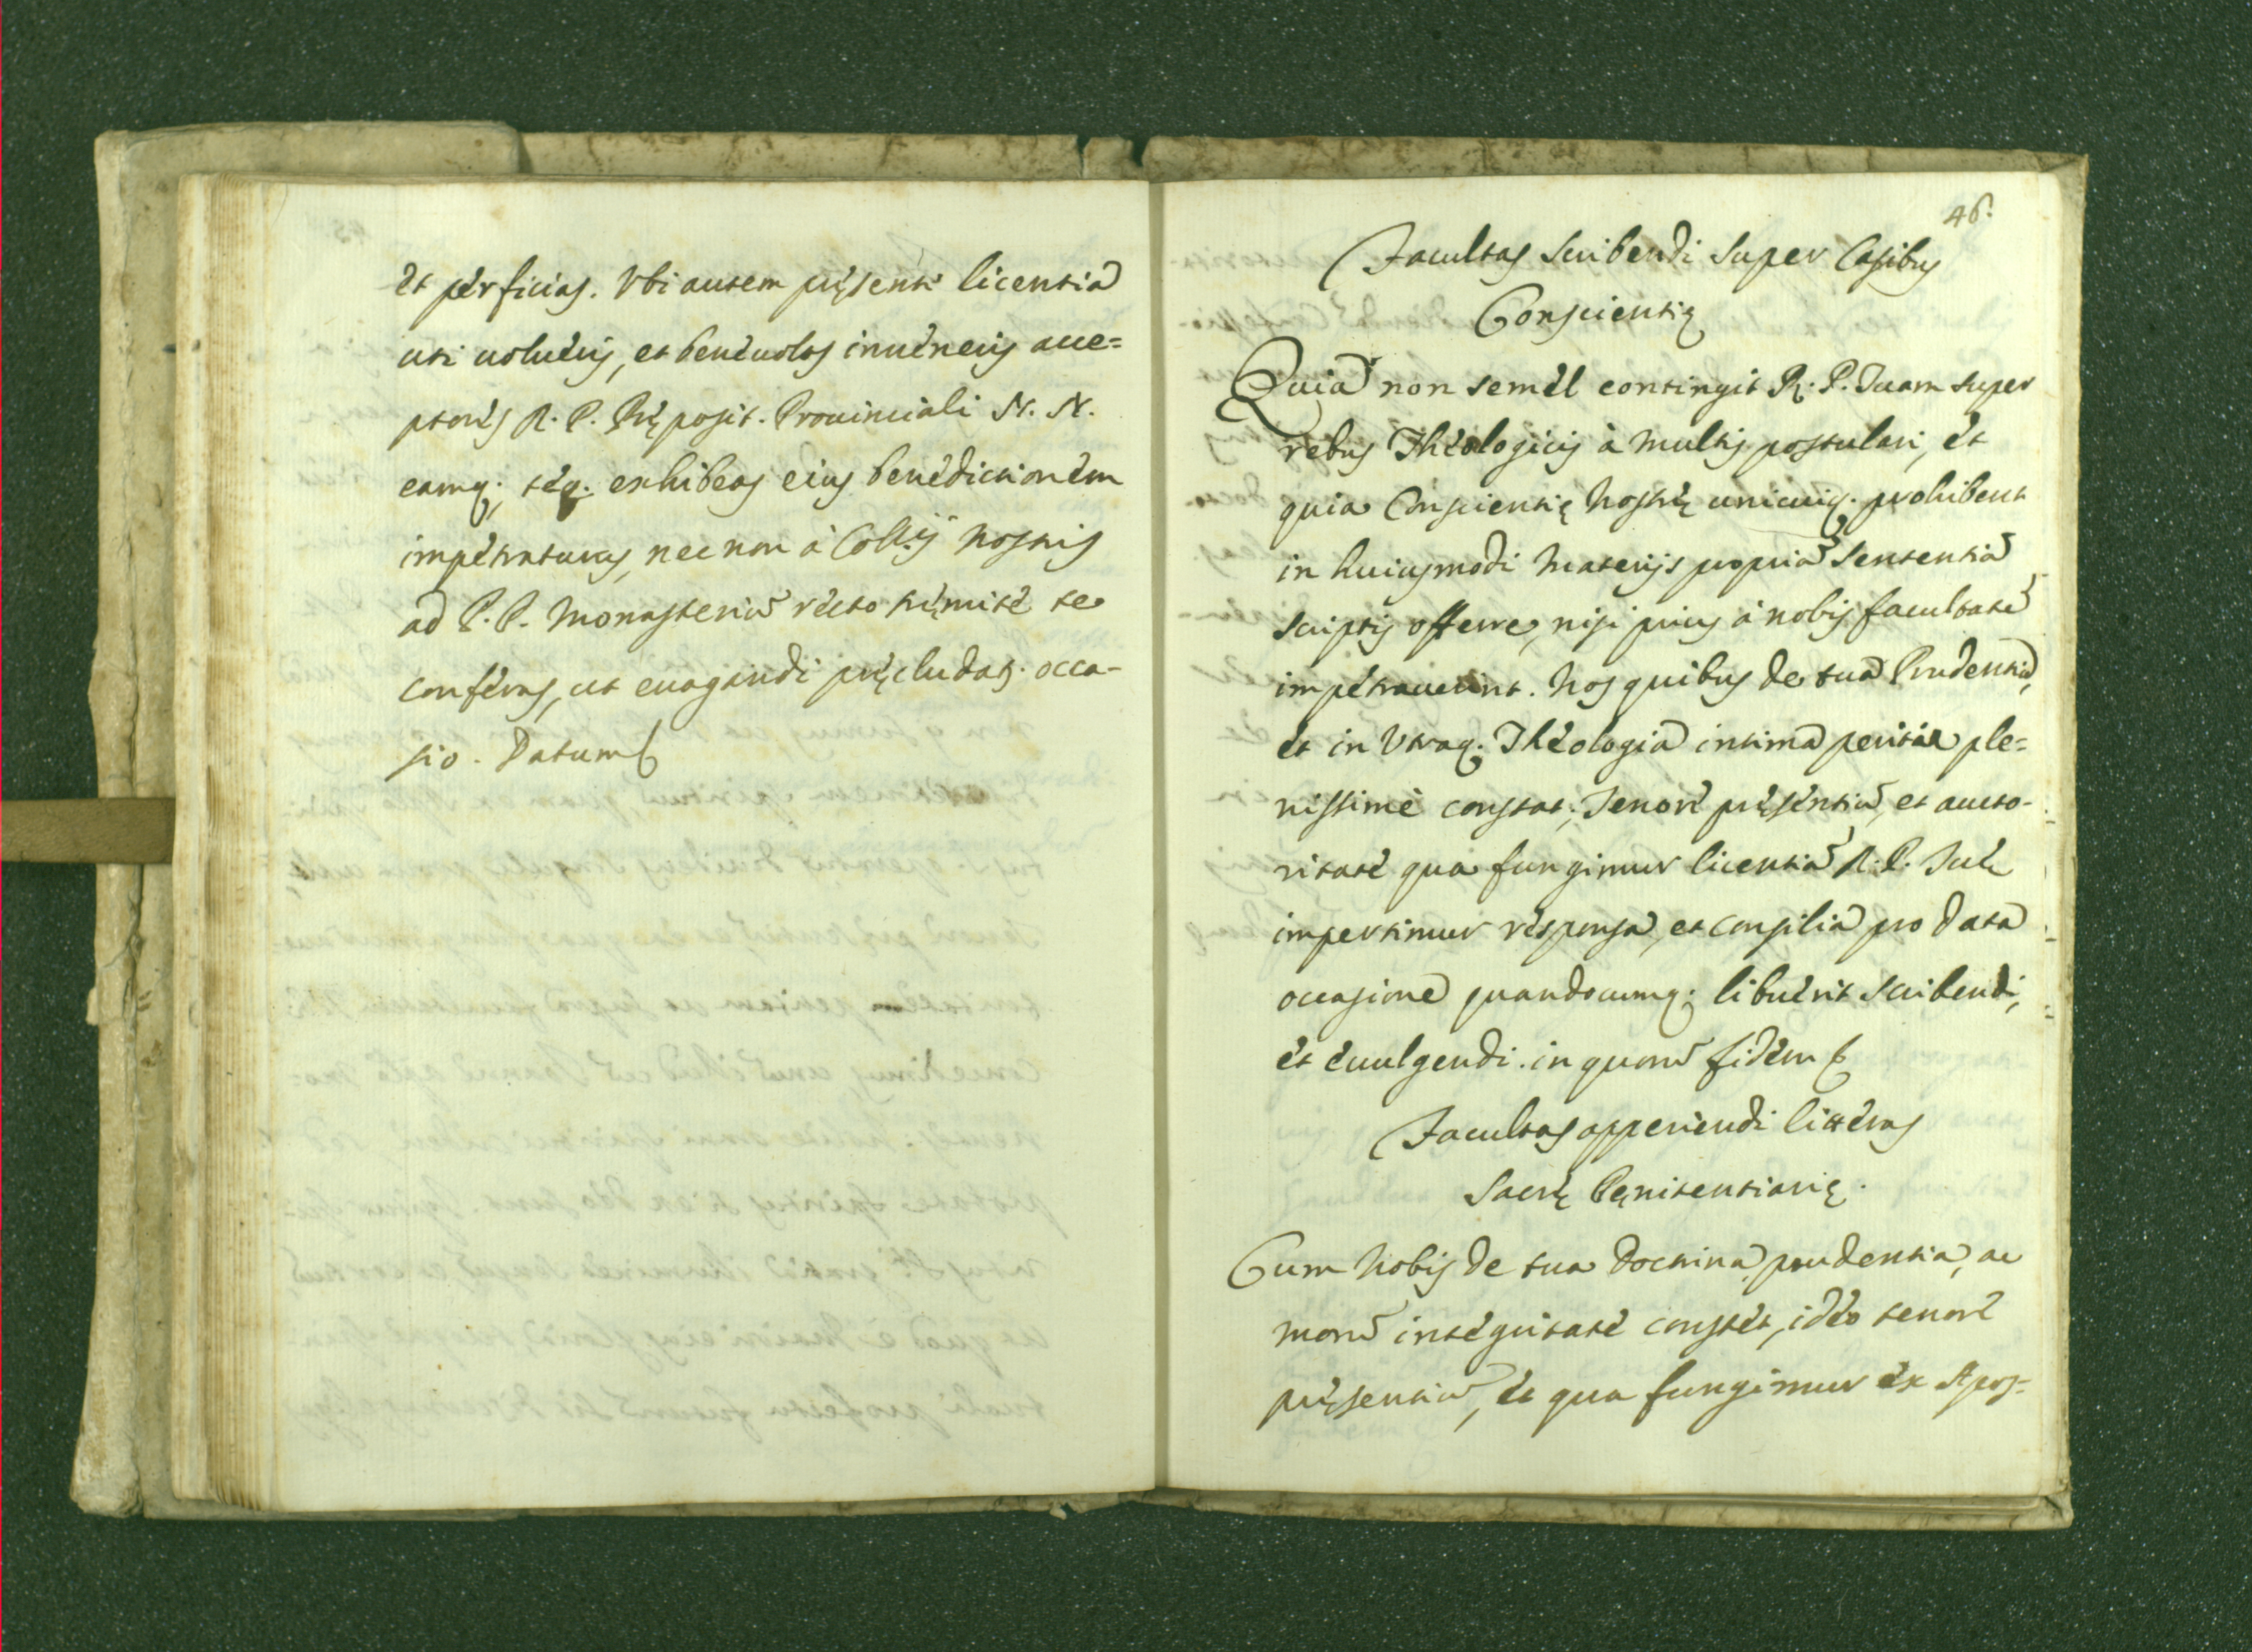 et perficias. Vbi autem pręsenti licentia
uti uolueris, et beneuolos inueneris acce=
ptores R. P. Pręposit. Prouinciali N. N.
eamq; teq. exhibeas eius benedictionem
impetraturus, nec non à Collijs nostris
ad P. P. Monasteriũ recto tramite te
conferas, ut euagandi pręcludatᷣ. occa-
sio. Datum
46.
Facultas Scribendi super Casibus
Conscientię
Quia non semel contingit R. P. Tuam super
rebus Theologicis à multis postulari, et
quia Conscientię nostrę unicuiq. prohibent
in huiusmodi Materijs propriã Sententiã
scriptis offerre, nisi prius à nobis facultatẽ
impetrauerint. Nos quibus de tua Prudentia,
et in Vtraq. Theologia intima peritia ple=
nissimè constat; Tenore pręsentiũ, et aucto-
ritate qua fungimur licentiã R. P. Tuę
impertimur responsa, et consilia pro data
occasione quandocumq; libuerit scribendi,
et euulgendi. in quorũ fidem
Facultas apperiendi litteras
Sacrę Pęnitentiarię.
Cum Nobis de tua doctrina, prudentia, ac
morũ integritate constet, ideo tenore
pręsentiũ, et qua fungimur ex Apos=